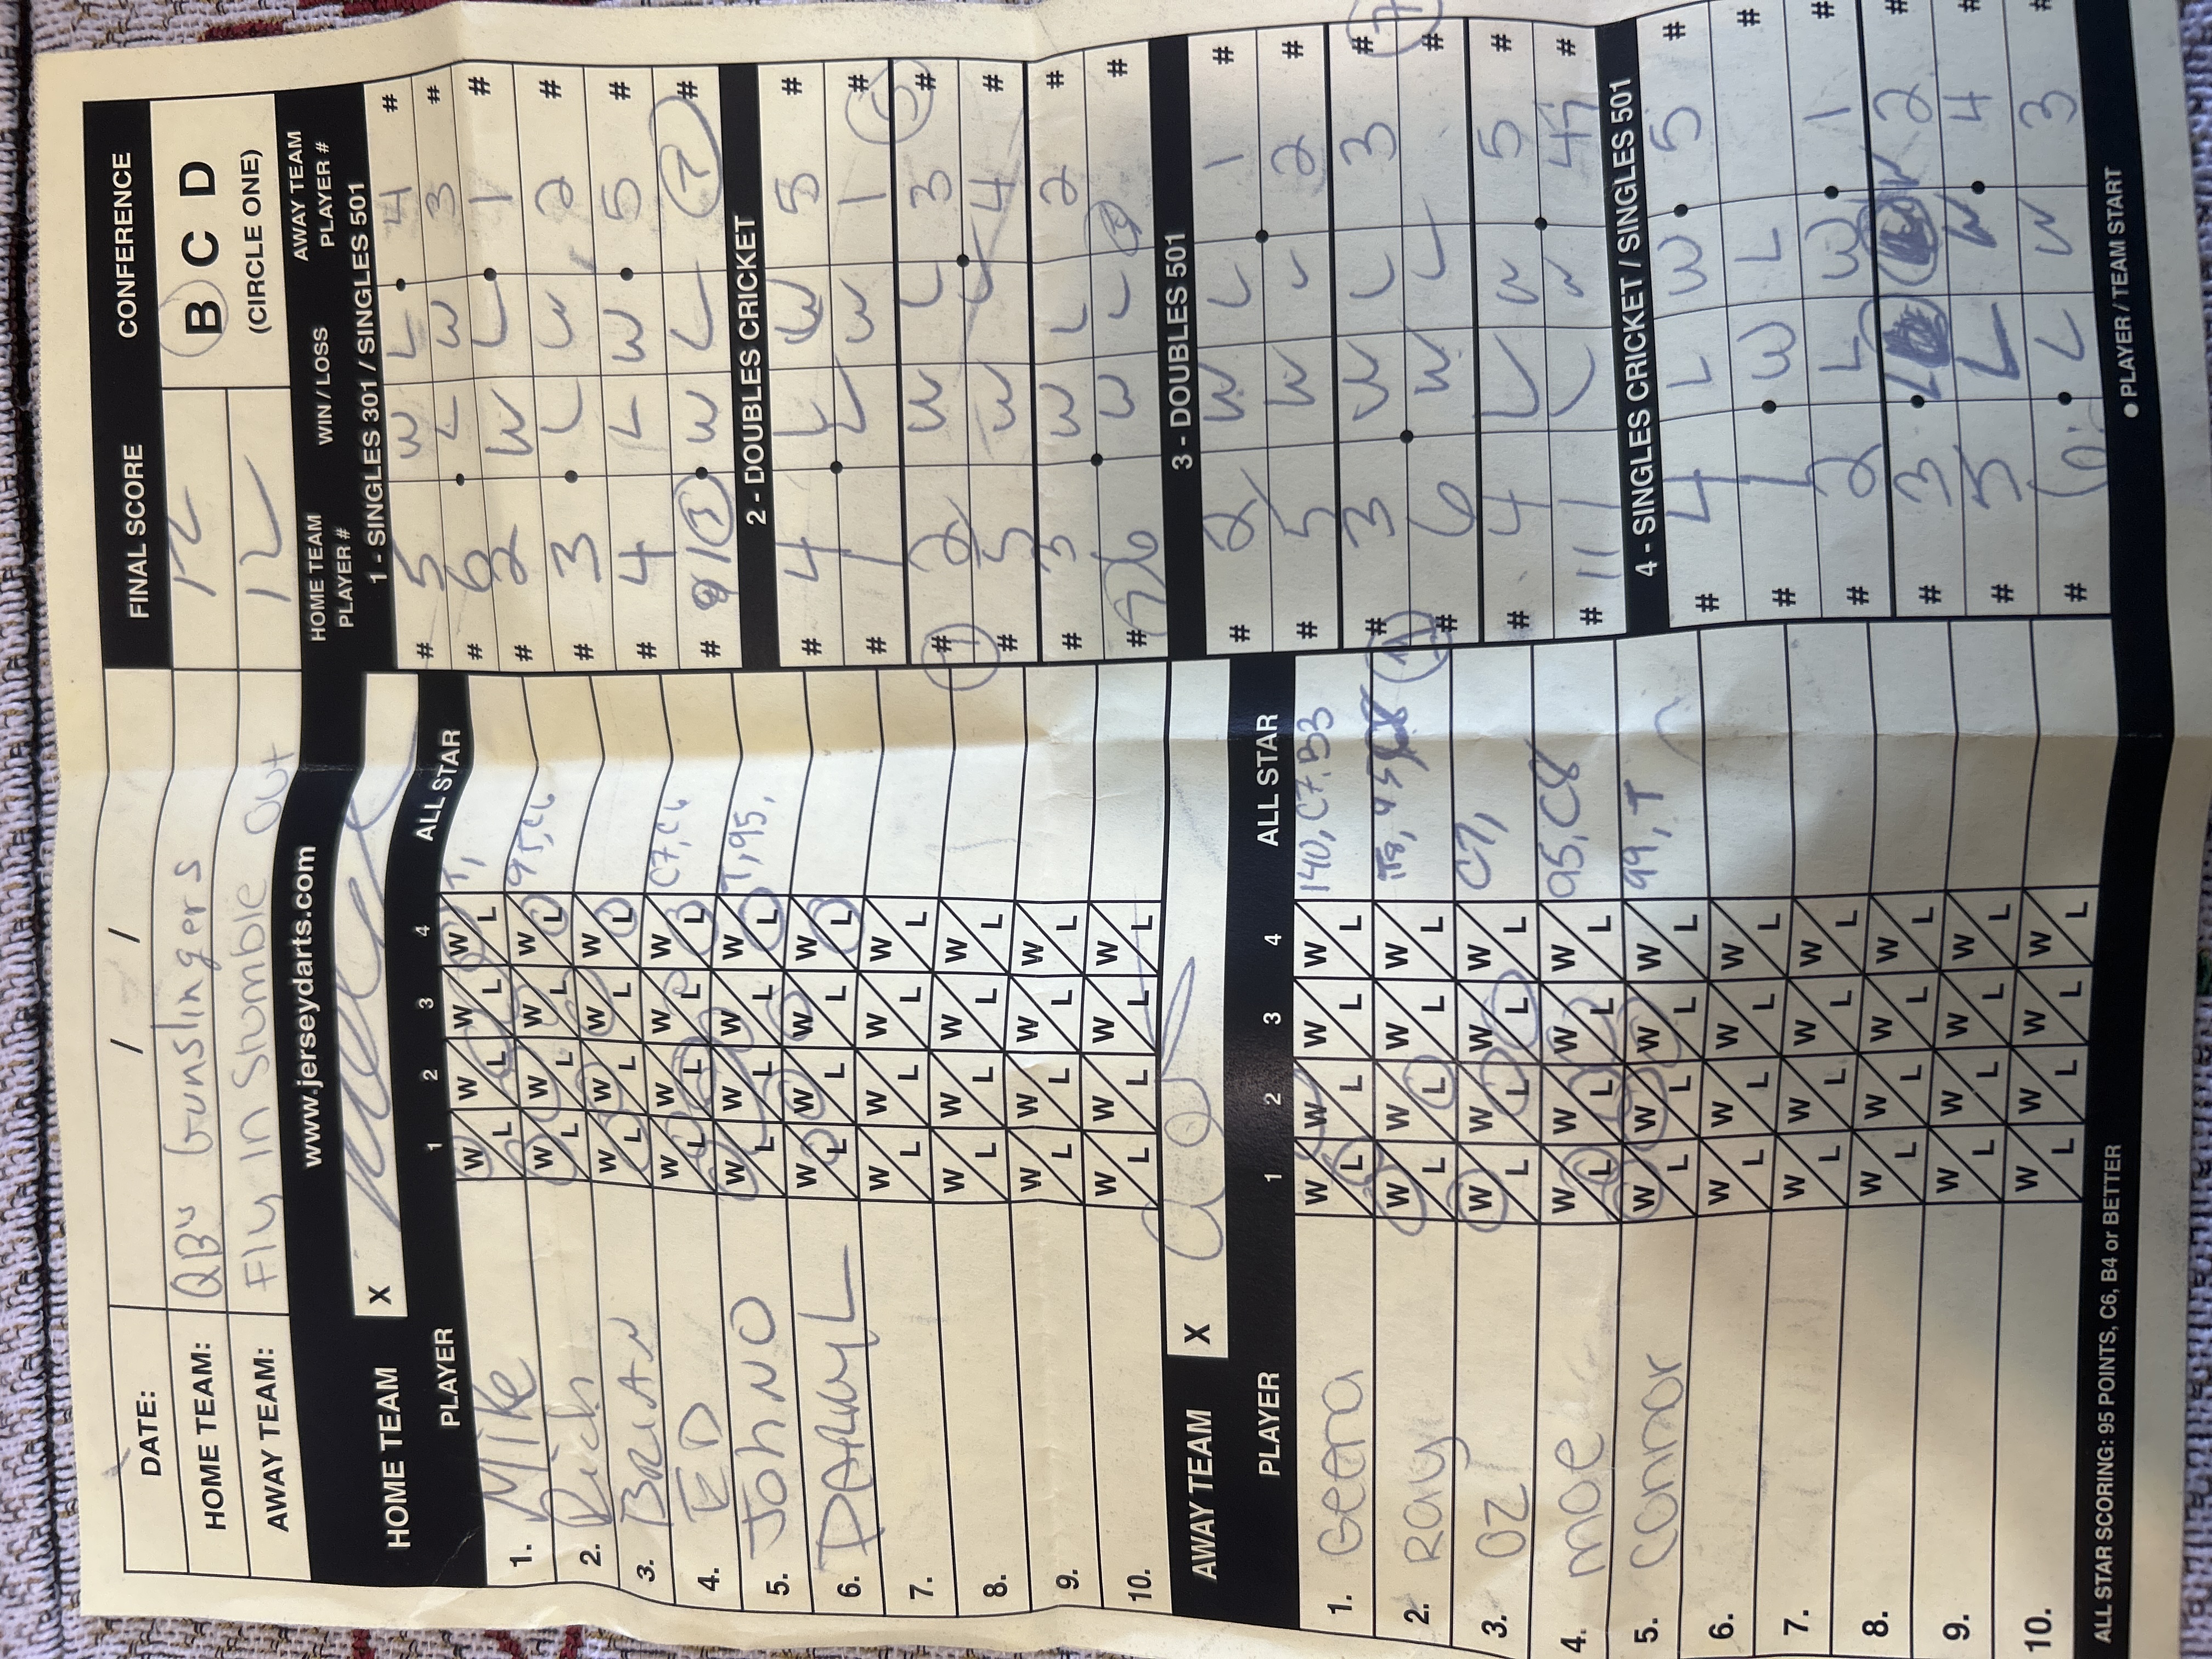 DATE: / /
HOME TEAM: QB's Gunslingers
AWAY TEAM: Fly In Stumble Out
FINAL SCORE
12
12
CONFERENCE
B C D
(CIRCLE ONE)
www.jerseydarts.com
HOME TEAM X
PLAYER 1 2 3 4 ALL STAR
1. Mike W L W L W L W L T,
2. Rich W L W L W L W L 95, C6
3. BRIAN W L W L W L W L
4. ED W L W L W L W L C7, C6
5. JOHNO W L W L W L W L T, 95,
6. DARRYL W L W L W L W L
7. W L W L W L W L
8. W L W L W L W L
9. W L W L W L W L
10. W L W L W L W L
AWAY TEAM X
PLAYER 1 2 3 4 ALL STAR
1. Geena W L W L W L W L 140, C7, B3
2. Ray W L W L W L W L
3. OZ W L W L W L W L C7,
4. Moe W L W L W L W L 95, C8
5. Connor W L W L W L W L 99, T
6. W L W L W L W L
7. W L W L W L W L
8. W L W L W L W L
9. W L W L W L W L
10. W L W L W L W L
ALL STAR SCORING: 95 POINTS, C6, B4 or BETTER
HOME TEAM PLAYER # WIN / LOSS AWAY TEAM PLAYER #
1 - SINGLES 301 / SINGLES 501
# 5 W L 4 #
# 6 L W 3 #
# 2 W L 1 #
# 3 L W 2 #
# 4 L W 5 #
# 1 3 W L
2 - DOUBLES CRICKET
# 4 L W 5 #
# 1 L W 1 #
# 2 W L 3 #
# 5 W L 4 #
# 3 W L 2 #
# 6 W L #
3 - DOUBLES 501
# 2 W L 1 #
# 5 W L 2 #
# 3 W L 3 #
# 6 W L #
# 4 L W 5 #
# 1 L W 4 #
4 - SINGLES CRICKET / SINGLES 501
# 4 L W 5 #
# 1 W L #
# 2 L W 1 #
# 3 L W 2 #
# 5 L W 4 #
# 6 L W 3 #
● PLAYER / TEAM START